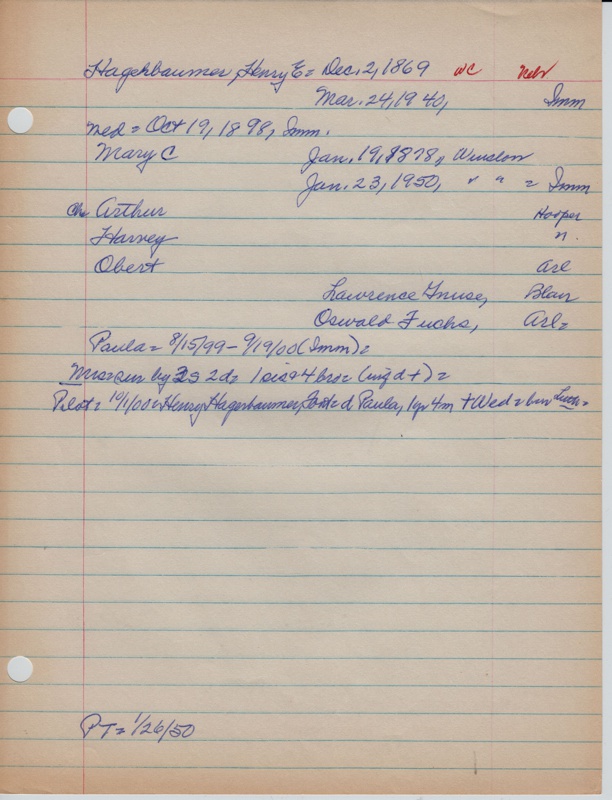 Hagenbaumer, Henry E = Dec. 2, 1869 WC Nebr
Mar. 24, 1940, Imm
Wed = Oct 19, 1898, Imm.
Mary C Jan. 19, 1878, Winslow
Jan. 23, 1950, " " = Imm
Ch. Arthur Hooper
Harvey n.
Obert Arl
Lawrence Gnuse, Blair
Oswald Fuchs, Arl =
Paula = 8/15/99 - 9/19/00 (Imm) =
Mrs = sur by 3s 2d = 1 sis + 4 bro =
Pilot = 10/1/00 = Henry Hagenbaumer, = d Paula, 1 yr 4m + Wed = bur Luth =
PT = 1/26/50